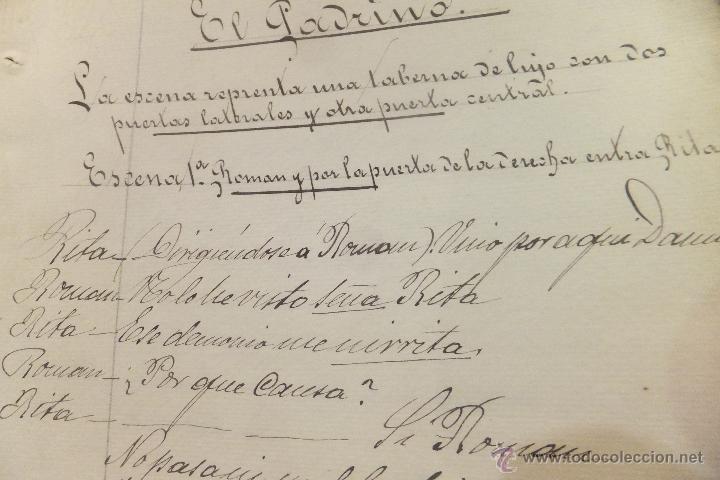 El Padrino.
La escena reprenta una taberna de lujo con dos
puertas laterales y otra puerta central.
Escena 1.a Roman y por la puerta de la derecha entra Rita
Rita — (Dirigiéndose á Roman). Vino por aqui
Roman — No lo he visto seña Rita
Rita — Ese demonio me irrita.
Roman — ¿Por que causa?
Rita — Si Roman
No pasa
www.todocoleccion.net